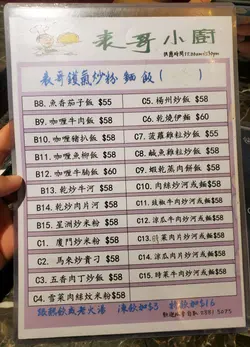 表哥小廚
供應時間 11:30am-5:30pm
表哥鑊氣炒粉麵飯( )
B8. 魚香茄子飯 $55
B9. 咖喱牛肉飯 $58
B10. 咖喱豬扒飯 $58
B11. 咖喱魚柳飯 $58
B12. 咖喱牛腩飯 $60
B13. 乾炒牛河 $58
B14. 乾炒肉片河 $58
B15. 星洲炒米粉 $58
C1. 廈門炒米粉 $58
C2. 馬來炒貴刁 $58
C3. 五香肉丁炒飯 $58
C4. 雪菜肉絲炆米粉$58
C5. 楊州炒飯 $58
C6. 乾燒伊麵 $60
C7. 菠蘿雞粒炒飯 $58
C8. 鹹魚雞粒炒飯 $58
C9. 蝦乾蒸肉餅飯 $58
C10. 肉絲炒河或麵$58
C11. 豉椒牛肉炒河或麵$58
C12. 涼瓜牛肉炒河或麵$58
C13. 菜肉片炒河或麵$58
C14. 涼瓜肉片炒河或麵$58
C15. 菜牛肉炒河或麵$58
跟熱飲或老火湯 凍飲加$3 $16